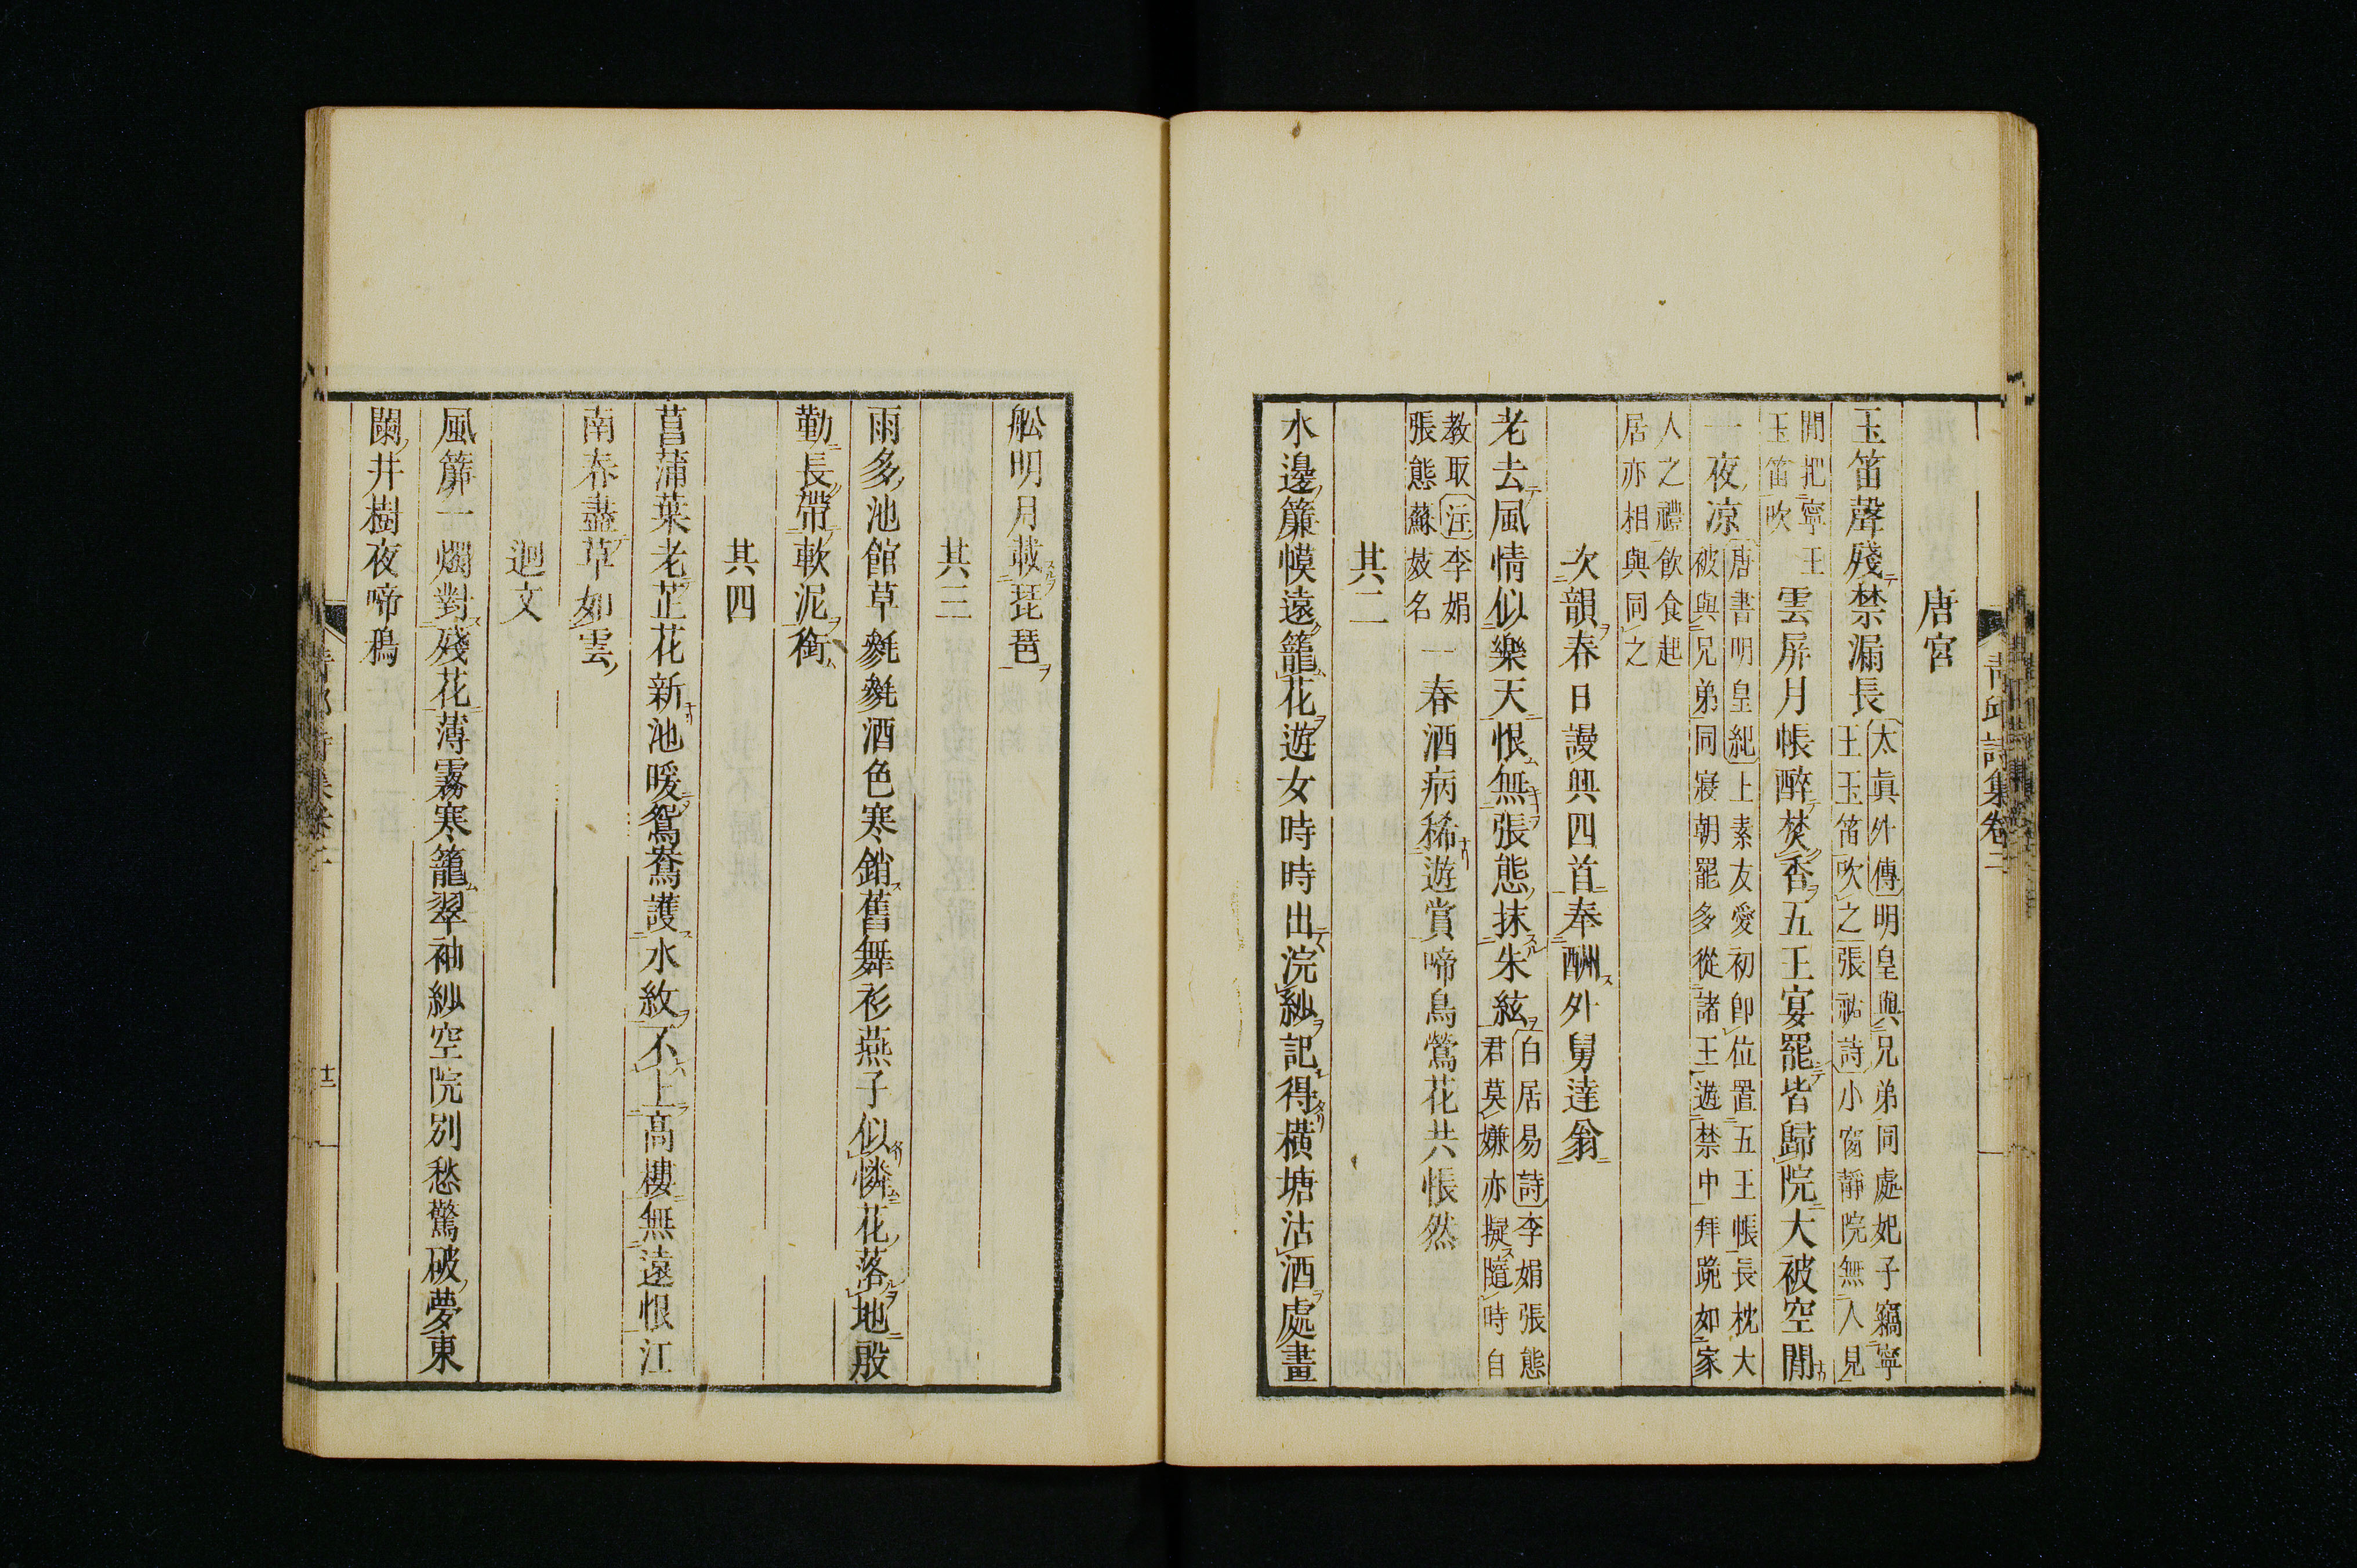 唐宮
玉笛聲殘禁漏長太眞外傳明皇與兄弟同處妃子竊寧王玉笛吹之張祜詩小窗靜院無人見
閒把寧王玉笛吹雲屏月帳醉焚香五王宴罷皆歸院大被空閒
一夜凉唐書明皇紀上素友愛初卽位置五王帳長枕大被與兄弟同寢朝罷多從諸王遊禁中拜跪如家
人之禮飮食起居亦相與同之
次韻春日謾興四首奉酬外舅達翁
老去風情似樂天恨無張態抹朱絃白居易詩李娟張態君莫嫌亦擬隨時自
教取注李娟張態蘇妓名一春酒病稀遊賞啼鳥鶯花共悵然
其二
水邊簾幙遠籠花遊女時時出浣紗記得橫塘沽酒處畫
舩明月載琵琶
其三
雨多池館草毿毿酒色寒銷舊舞衫燕子似憐花落地殷
勤長帶軟泥銜
其四
菖蒲葉老芷花新池暖鴛鴦護水紋不上高樓無遠恨江
南春盡草如雲
迴文
風簾一燭對殘花薄霧寒籠翠袖紗空院別愁驚破夢東
闌井樹夜啼鴉
靑邱詩集卷二
十二